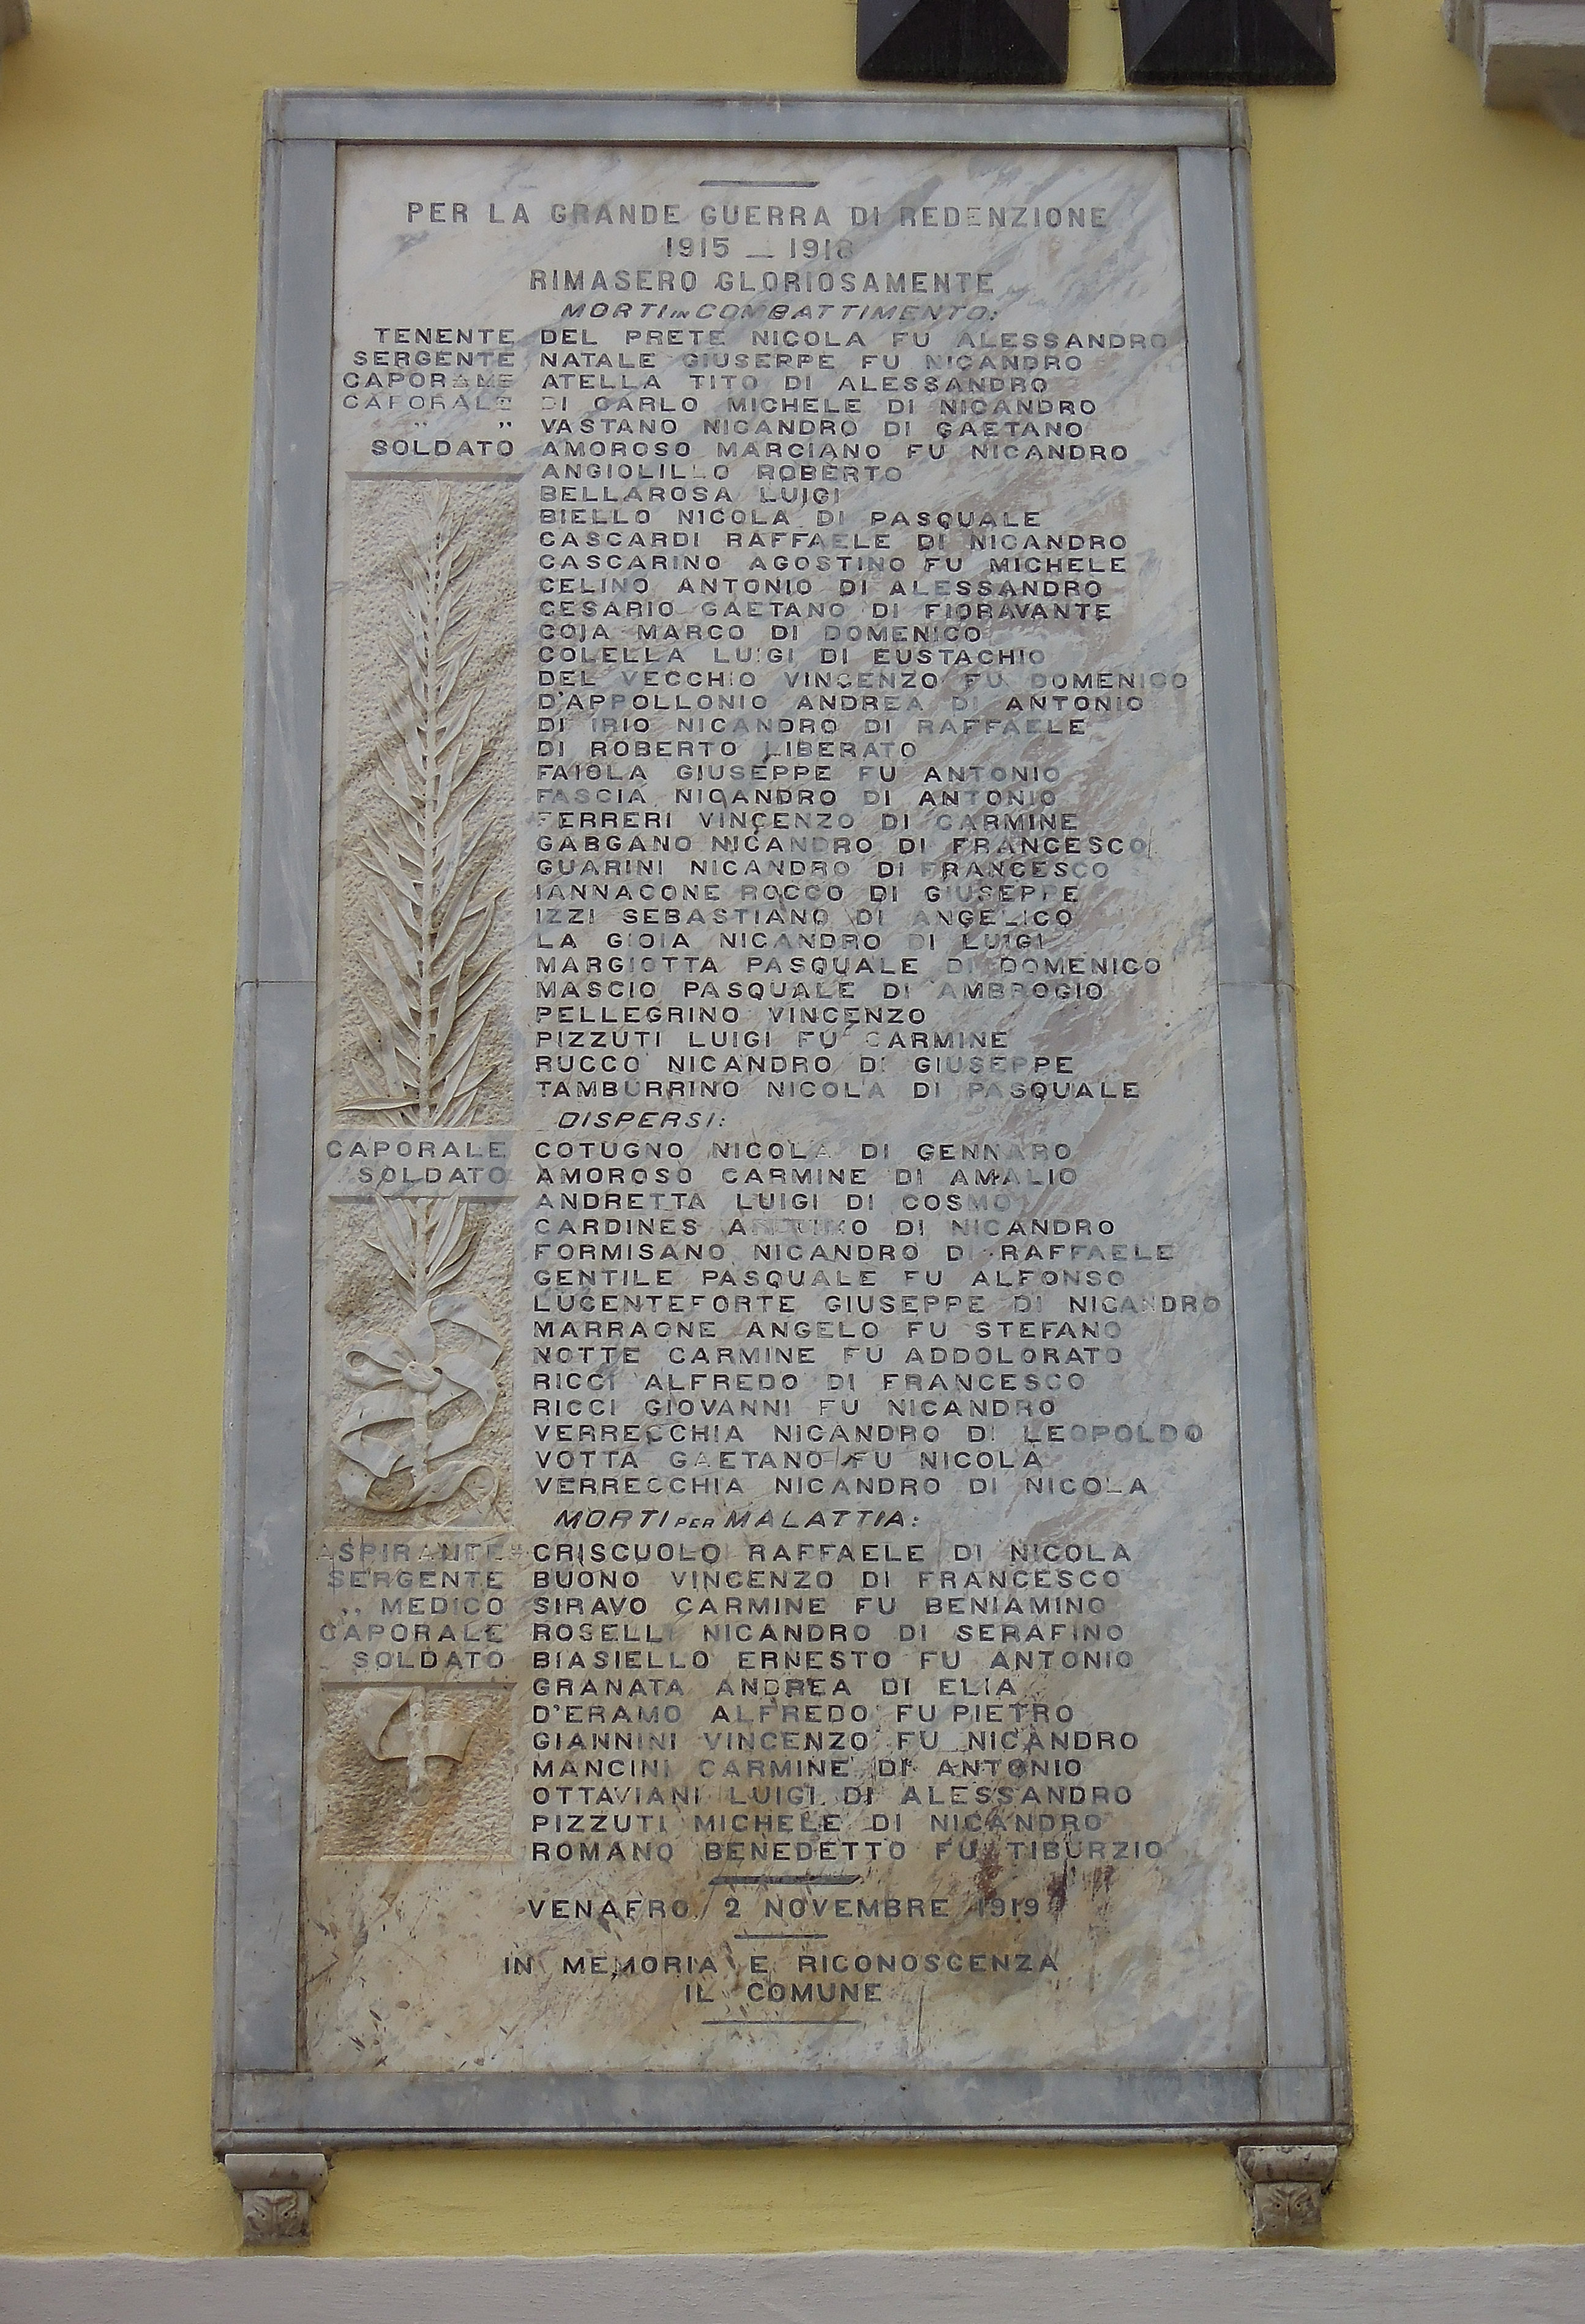 PER LA GRANDE GUERRA DI REDENZIONE
1915 — 1918
RIMASERO GLORIOSAMENTE
MORTI IN COMBATTIMENTO:
TENENTE DEL PRETE NICOLA FU ALESSANDRO
SERGENTE NATALE GIUSEPPE FU NICANDRO
ATELLA TITO DI ALESSANDRO
CAPORALE DI CARLO MICHELE DI NICANDRO
" " VASTANO NICANDRO DI GAETANO
SOLDATO AMOROSO MARCIANO FU NICANDRO
ANGIOLILLO ROBERTO
BELLAROSA LUIGI
BIELLO NICOLA DI PASQUALE
CASCARDI RAFFAELE DI NICANDRO
CASCARINO AGOSTINO FU MICHELE
CELINO ANTONIO DI ALESSANDRO
CESARIO GAETANO DI FIORAVANTE
COJA MARCO DI DOMENICO
COLELLA LUIGI DI EUSTACHIO
DEL VECCHIO VINCENZO FU DOMENICO
D'APPOLLONIO ANDREA DI ANTONIO
DI IRIO NICANDRO DI RAFFAELE
DI ROBERTO LIBERATO
FAIOLA GIUSEPPE FU ANTONIO
FASCIA NICANDRO DI ANTONIO
FERRERI VINCENZO DI CARMINE
GARGANO NICANDRO DI FRANCESCO
GUARINI NICANDRO DI FRANCESCO
IANNACONE ROCCO DI GIUSEPPE
IZZI SEBASTIANO DI ANGELICO
LA GIOIA NICANDRO DI LUIGI
MARGIOTTA PASQUALE DI DOMENICO
MASCIO PASQUALE DI AMBROGIO
PELLEGRINO VINCENZO
PIZZUTI LUIGI FU CARMINE
RUCCO NICANDRO DI GIUSEPPE
TAMBURRINO NICOLA DI PASQUALE
DISPERSI:
CAPORALE COTUGNO NICOLA DI GENNARO
SOLDATO AMOROSO CARMINE DI AMALIO
ANDRETTA LUIGI DI COSMO
CARDINES DI NICANDRO
FORMISANO NICANDRO DI RAFFAELE
GENTILE PASQUALE FU ALFONSO
LUCENTEFORTE GIUSEPPE DI NICANDRO
MARRAONE ANGELO FU STEFANO
NOTTE CARMINE FU ADDOLORATO
RICCI ALFREDO DI FRANCESCO
RICCI GIOVANNI FU NICANDRO
VERRECCHIA NICANDRO DI LEOPOLDO
VOTTA GAETANO FU NICOLA
VERRECCHIA NICANDRO DI NICOLA
MORTI PER MALATTIA:
ASPIRANTE CRISCUOLO RAFFAELE DI NICOLA
SERGENTE BUONO VINCENZO DI FRANCESCO
,, MEDICO SIRAVO CARMINE FU BENIAMINO
CAPORALE ROSELLI NICANDRO DI SERAFINO
SOLDATO BIASIELLO ERNESTO FU ANTONIO
GRANATA ANDREA DI ELIA
D'ERAMO ALFREDO FU PIETRO
GIANNINI VINCENZO FU NICANDRO
MANCINI CARMINE DI ANTONIO
OTTAVIANI LUIGI DI ALESSANDRO
PIZZUTI MICHELE DI NICANDRO
ROMANO BENEDETTO FU TIBURZIO
VENAFRO 2 NOVEMBRE 1919
IN MEMORIA E RICONOSCENZA
IL COMUNE